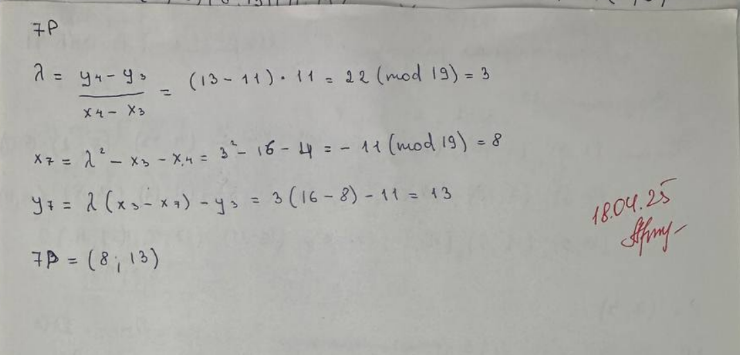 7P
λ = y₄ - y₃ / x₄ - x₃ = (13 - 11) · 11 = 22 (mod 19) = 3
x₇ = λ² - x₃ - x₄ = 3² - 16 - 4 = - 11 (mod 19) = 8
y₇ = λ (x₃ - x₇) - y₃ = 3 (16 - 8) - 11 = 13
7P = (8; 13)
18.04.25